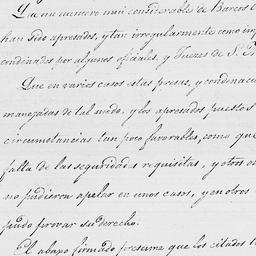 Que un numero mui considerable de Barcos
han sido apresados, y tan irregularmente como
condenados por algunos oficiales, y Juezes de S.
Que en varios casos estas presas, y condenac
manejadas de tal modo, y los apresados puestos
circumstancias tan poco favorables, como que
falta de las seguridades requisitas, y otros
no pudieron apelar en unos casos, y en otros
pudo provar su derecho.
El abajo firmado presume que los citados